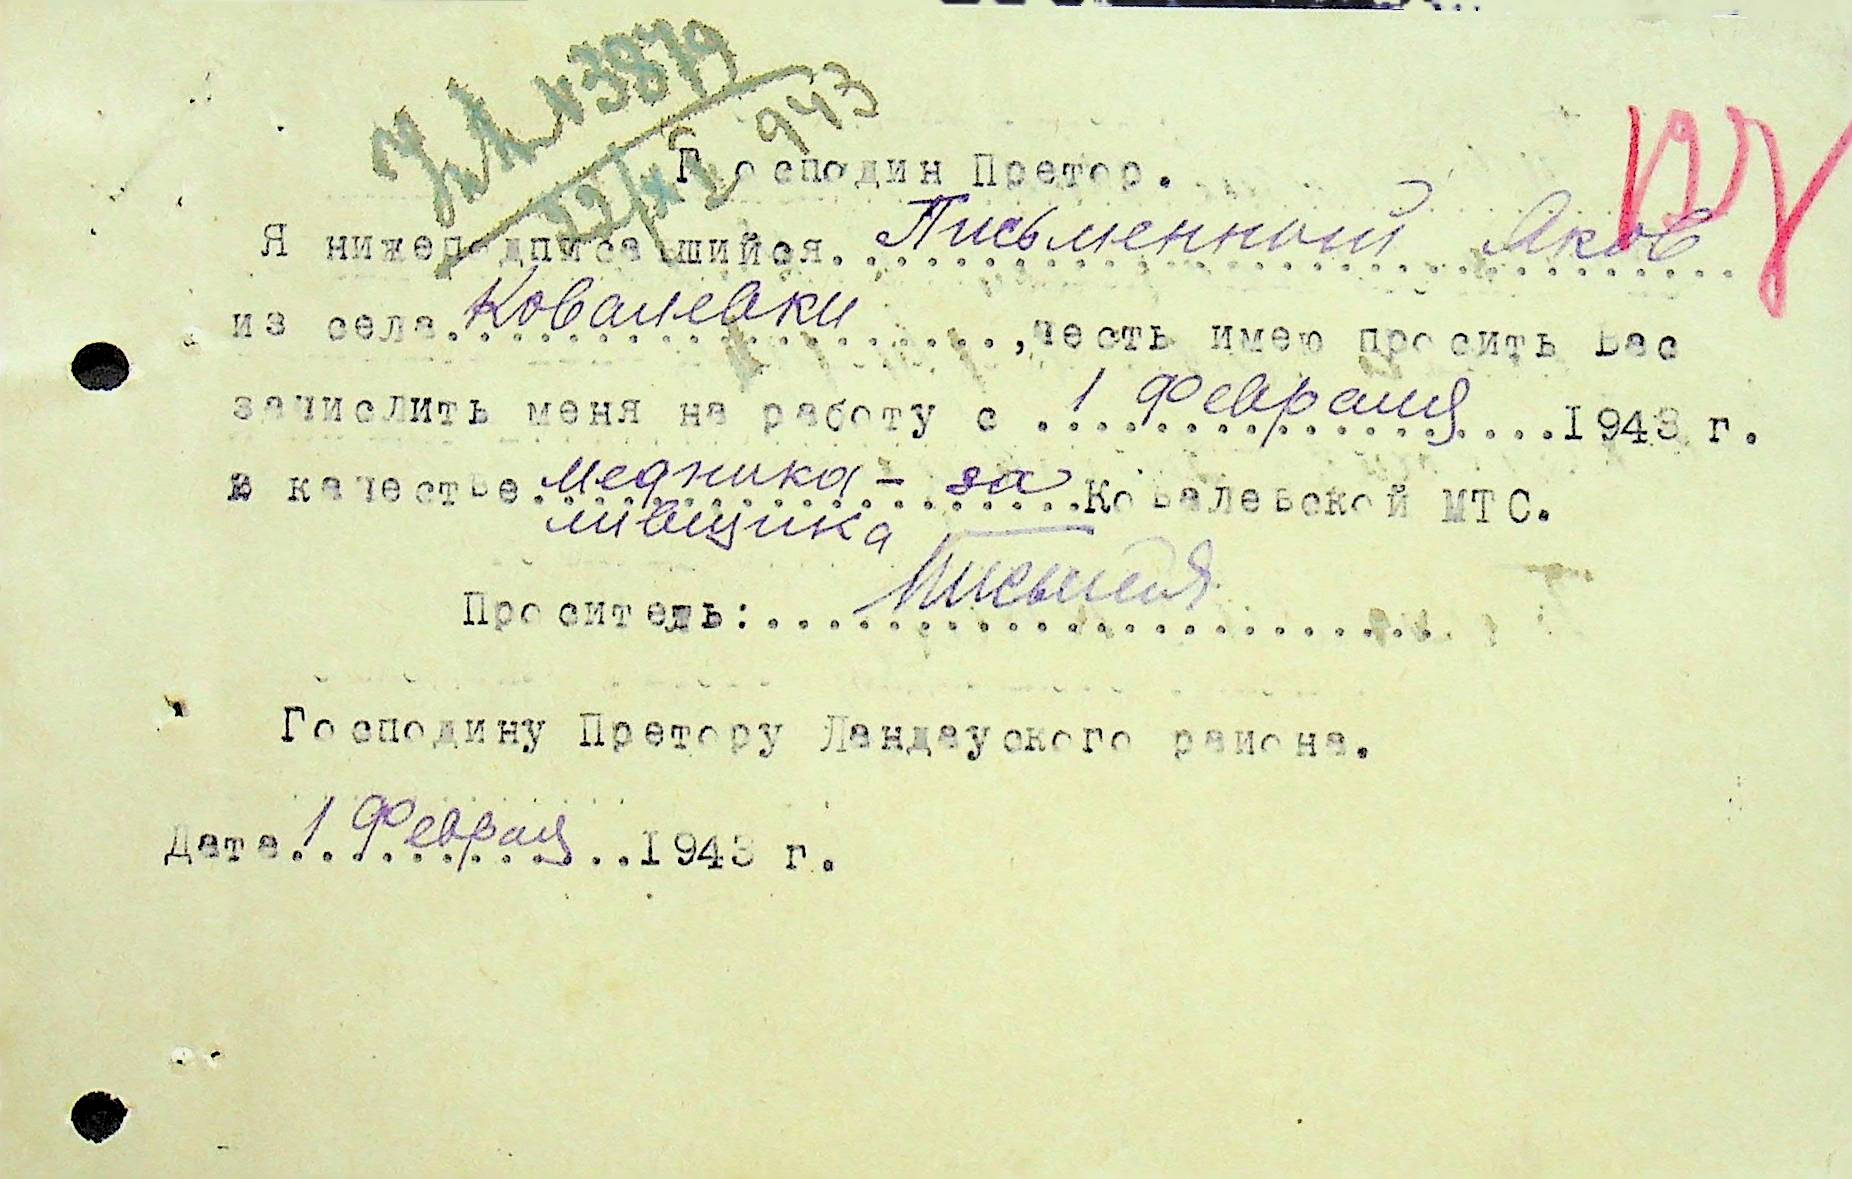 № 3879
22/XI 943
Господин Претор.
Я нижеподписавшийся. Письменный Яков
из села Ковалевки, честь имею просить Вас
зачислить меня на работу с 1 Февраля 1943 г.
в качестве медника - за Ковалевской МТС.
ливщика
Проситель:
Господину Претору Ландауского района.
Дата 1 Февраля 1943 г.